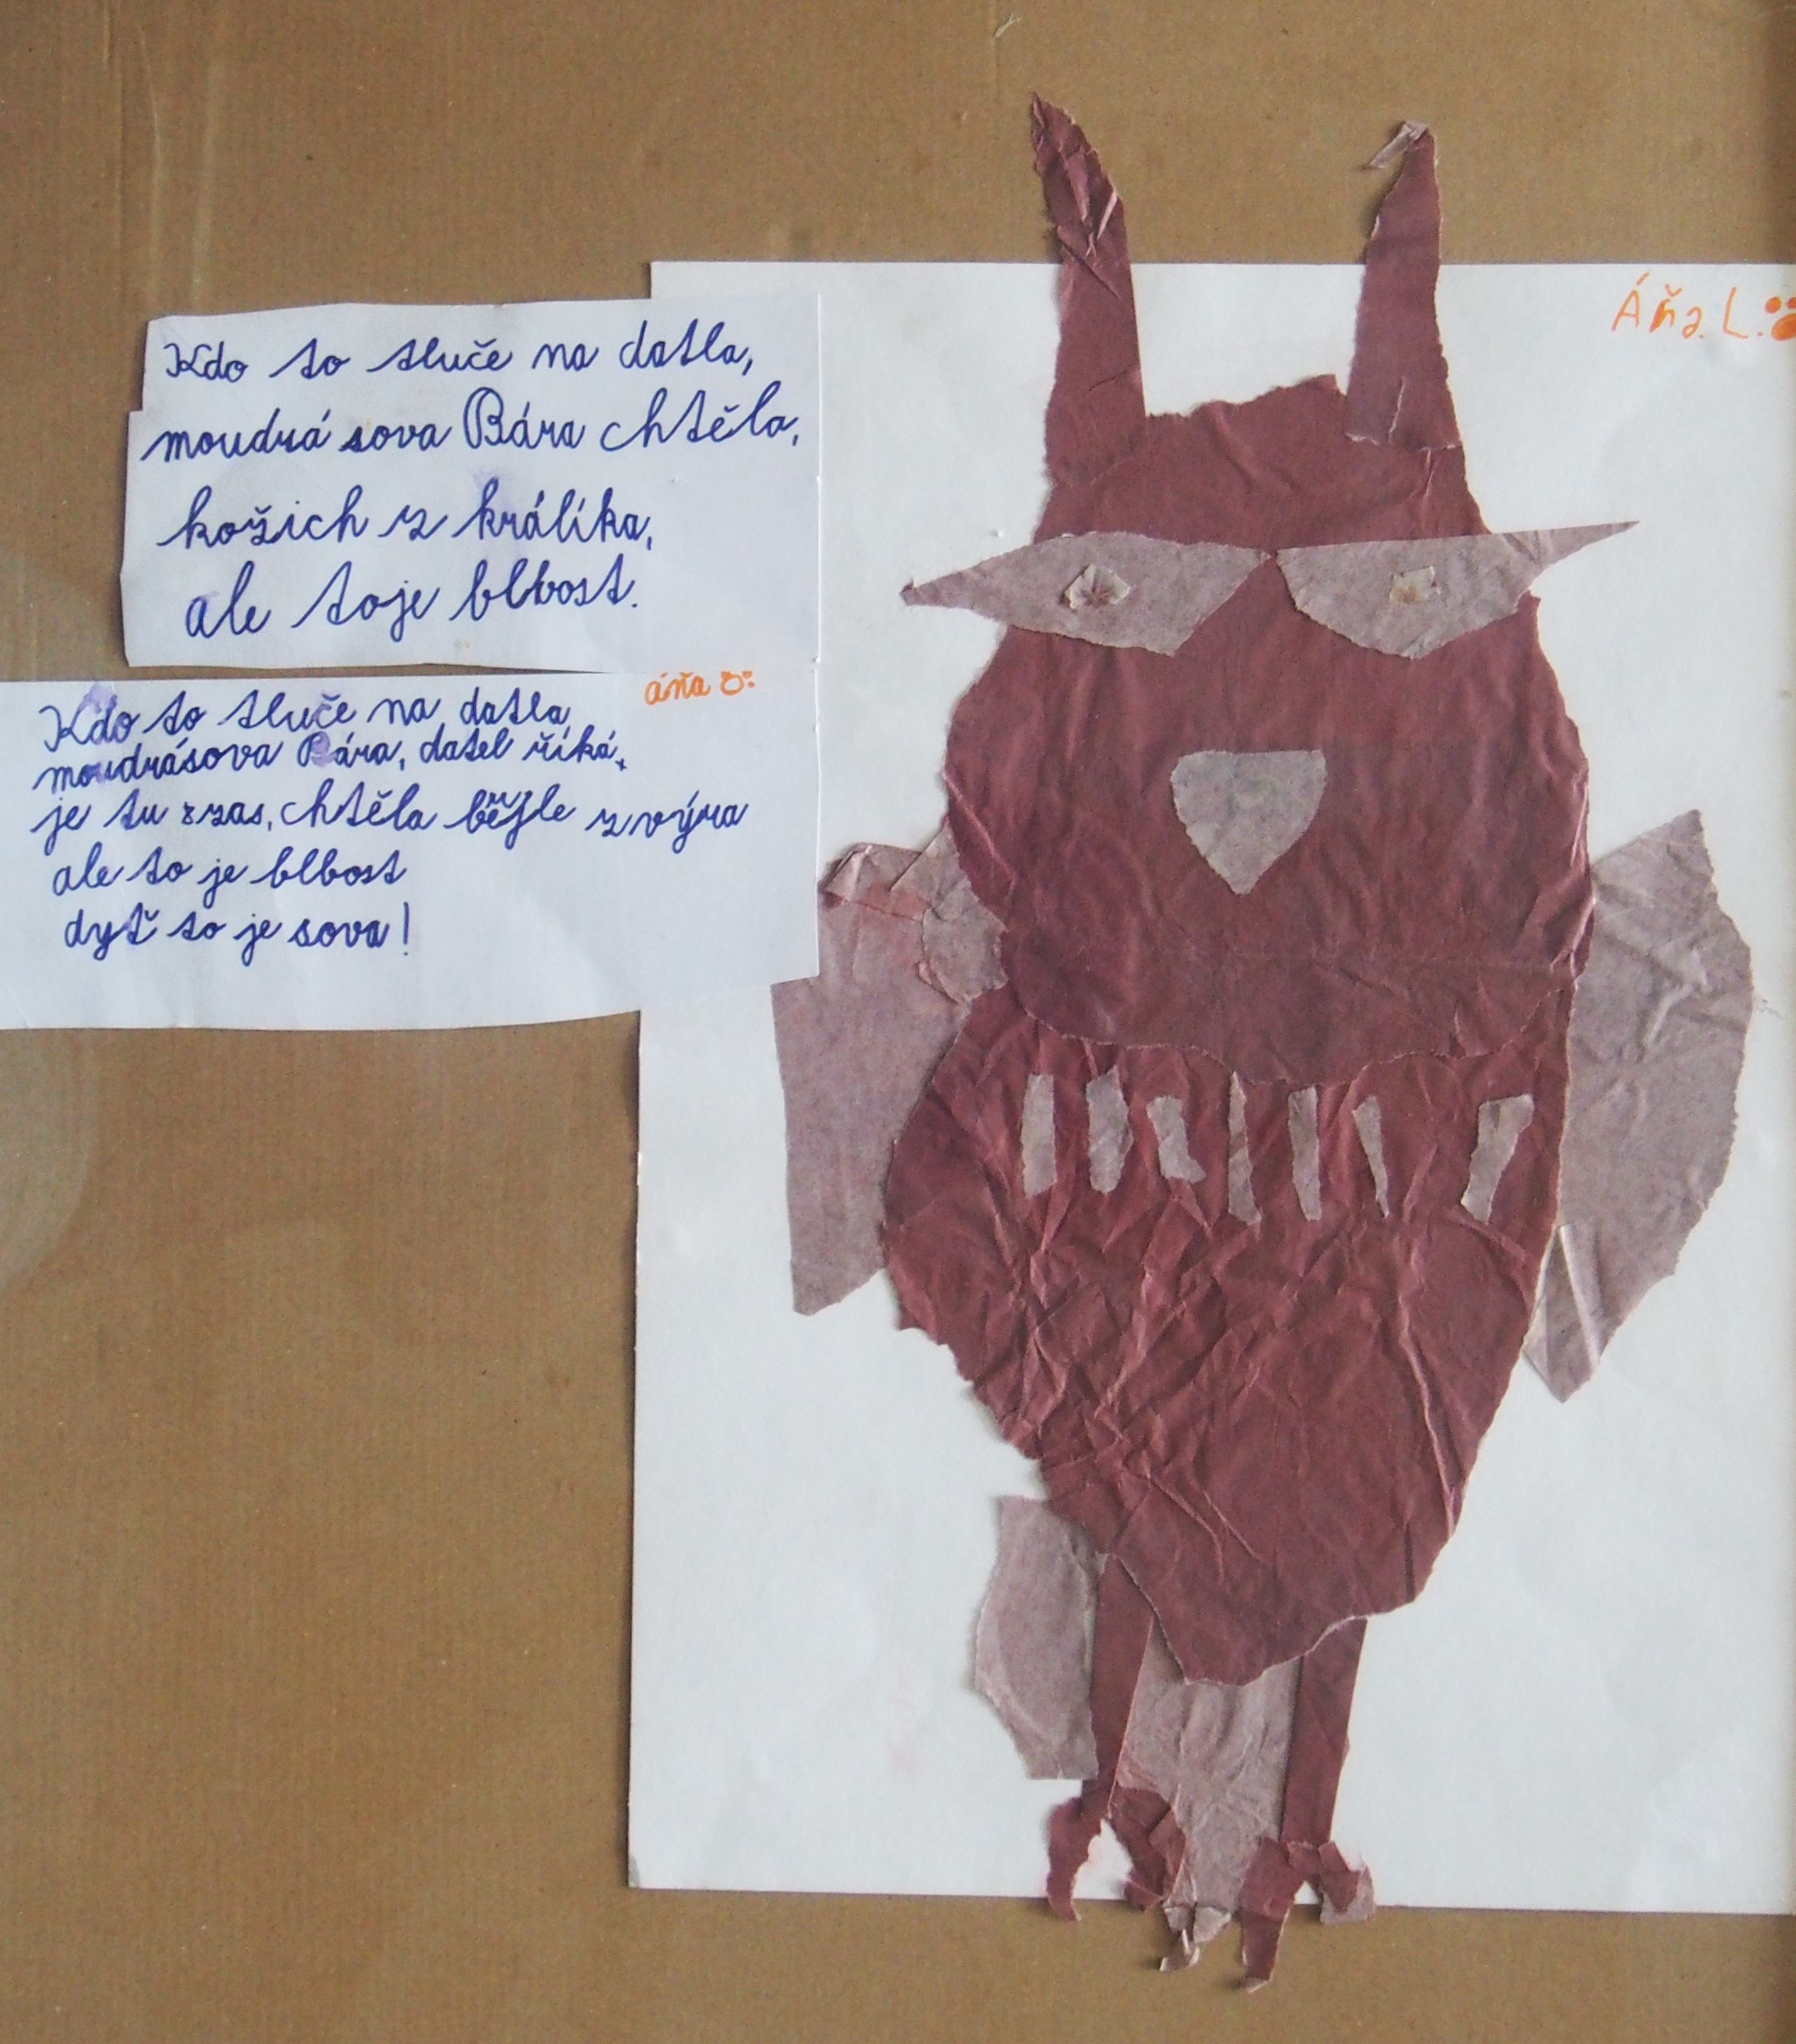 Kdo to tluče na datla,
moudrá sova Bára chtěla,
kožich z králíka,
ale toje blbost.
áňa
Kdo to tluče na datla
moudrásova Bára, datel říká,
je tu zas, chtěla z výra
ale to je blbost
dyť to je sova!
Áňa. L.